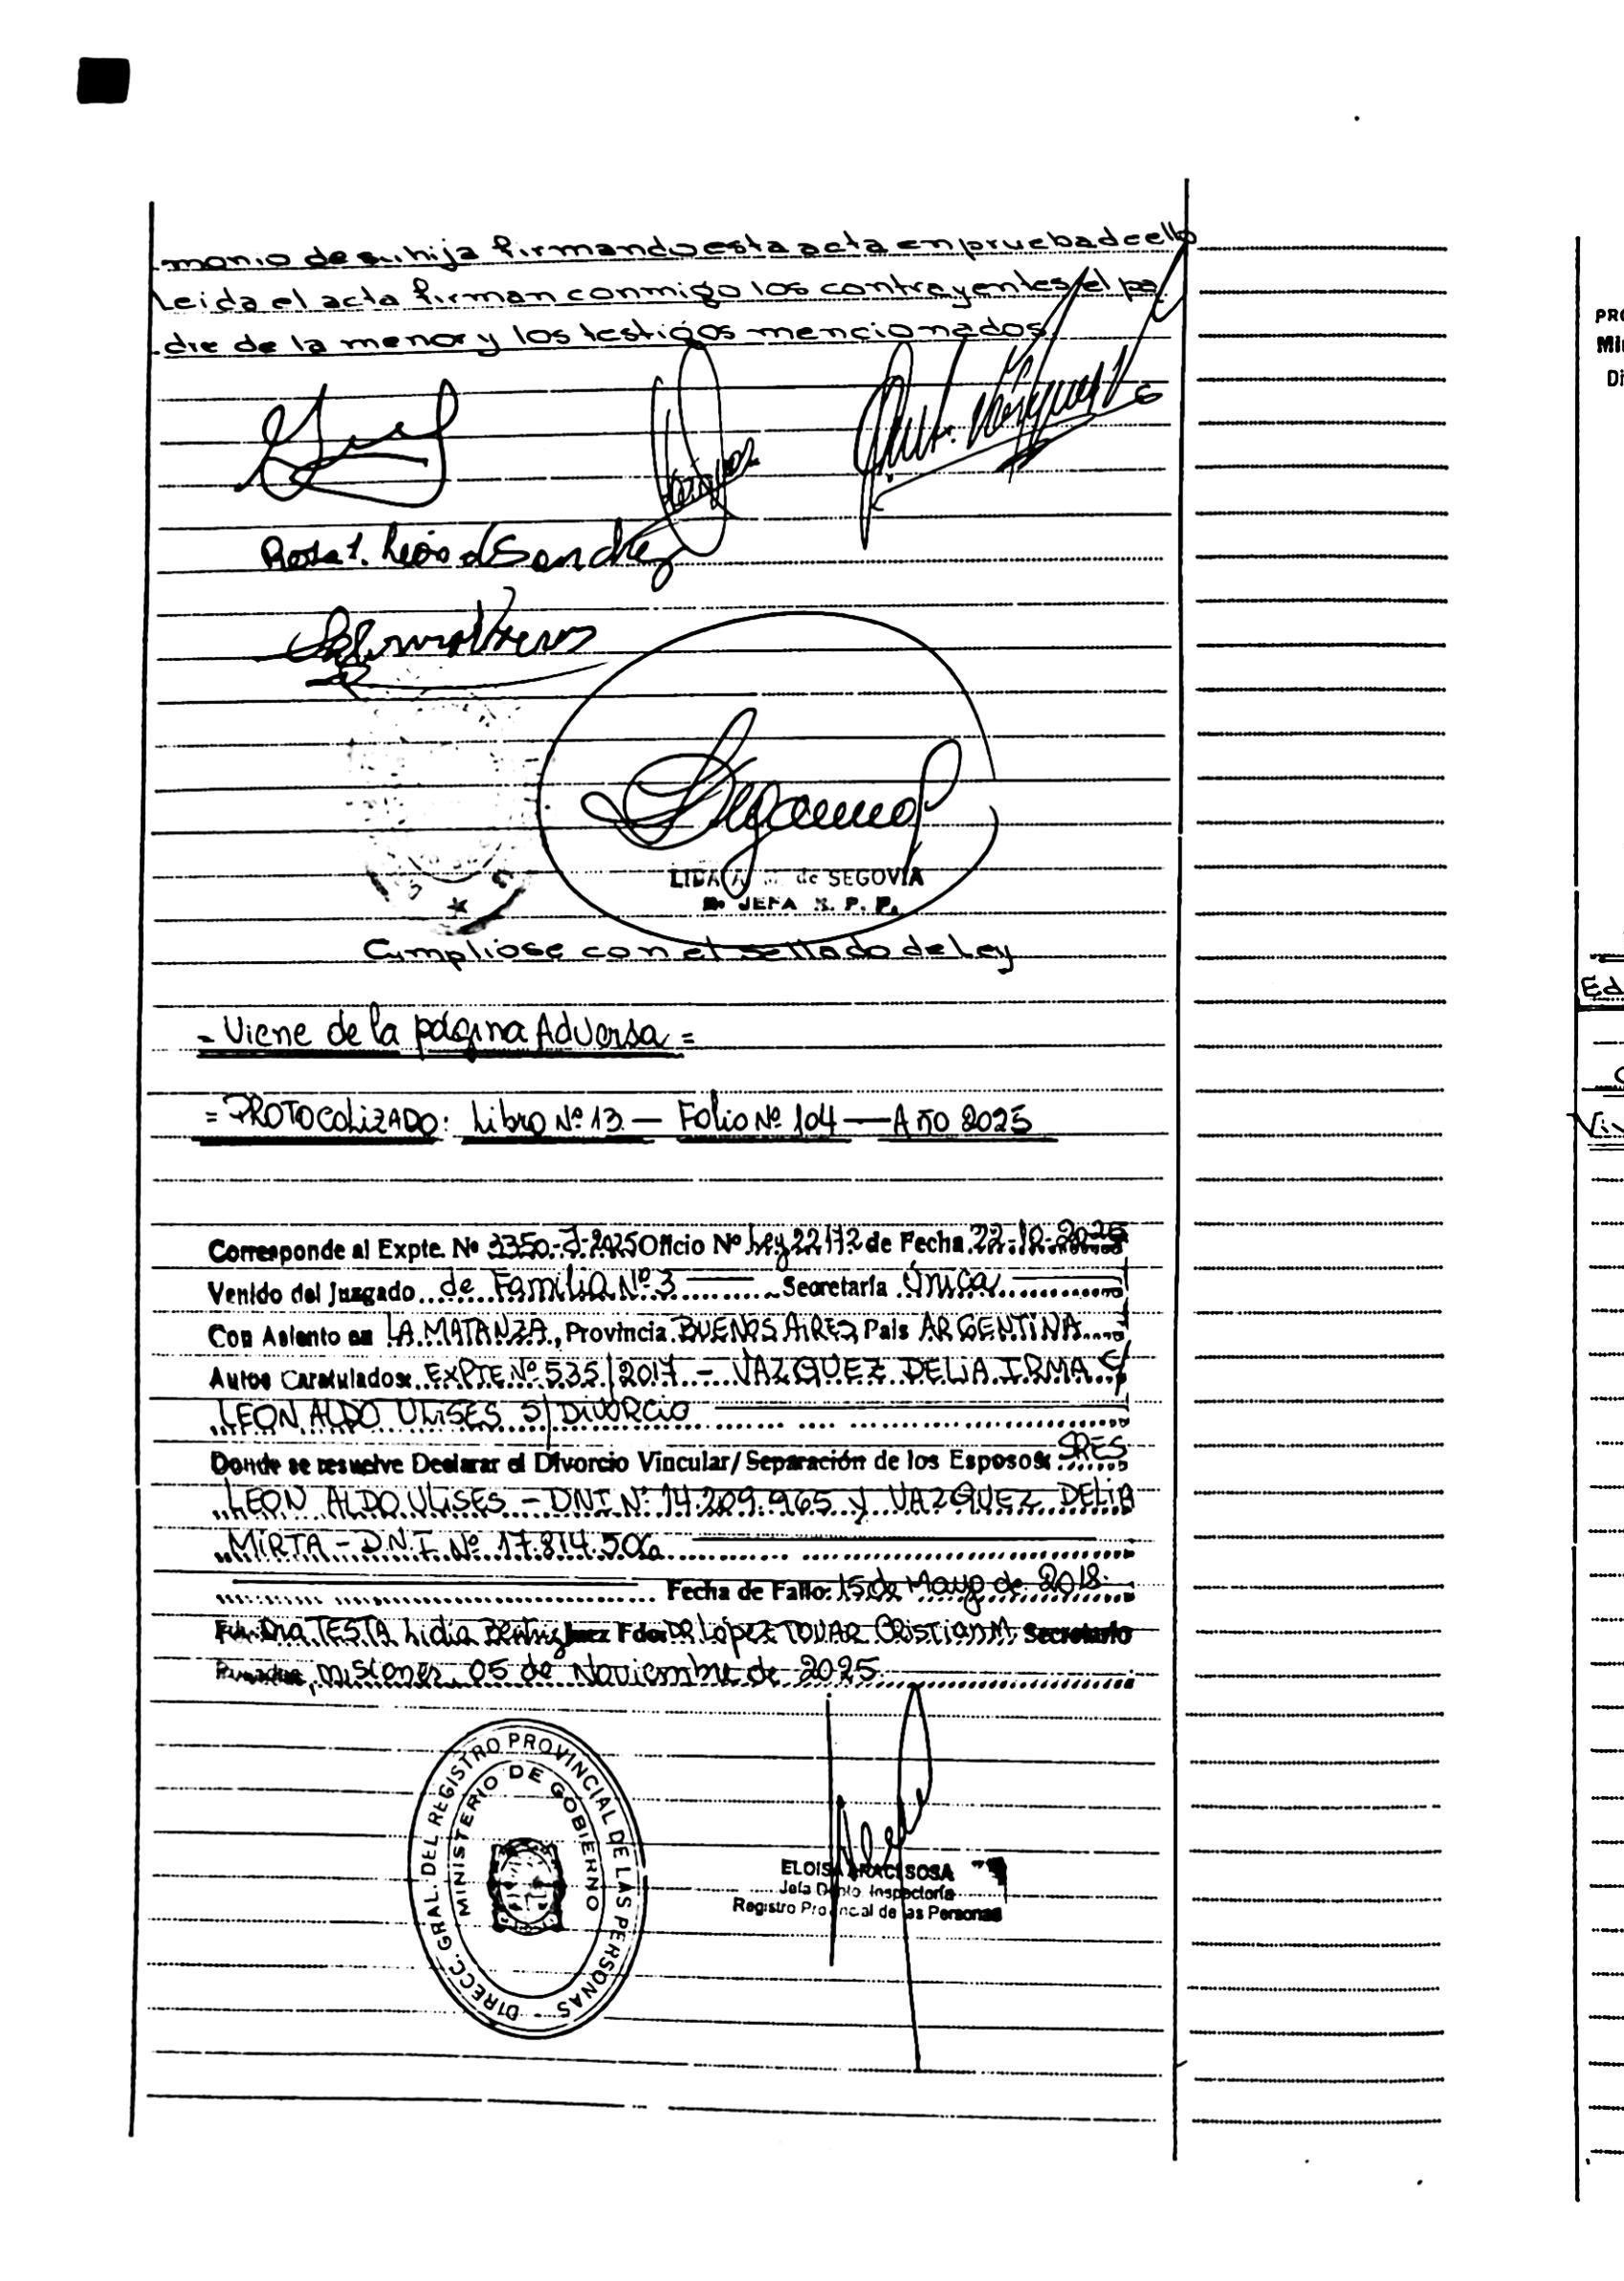 monio de su hija firmando esta acta en prueba de ello
Leida el acta firman conmigo los contrayentes, el pa
dre de la menor y los testigos mencionados.
Rosa
Cumpliose con el sellado de Ley
LIDA A. de SEGOVIA
JEFA
= Viene de la página Adversa =
= PROTOCOLIZADO: Libro Nº 13 — Folio Nº 104 — Año 2025
Corresponde al Expte. Nº 3350-J-2025 Oficio Nº Ley 22172 de Fecha 22-10-2025
Venido del Juzgado de Familia Nº 3 Secretaría Única
Con Asiento en LA MATANZA, Provincia BUENOS AIRES País ARGENTINA
Autos Caratulados: EXPTE Nº 535/2017 - VAZQUEZ DELIA IRMA C/
LEON ALDO ULISES S/ DIVORCIO
Donde se resuelve Declarar el Divorcio Vincular/Separación de los Esposos: SRES
LEON ALDO ULISES - DNI Nº 14.209.965 y VAZQUEZ DELIA
MIRTA - D.N.I. Nº 17.814.506
Fecha de Fallo: 15 de Mayo de 2018.
Fdo: Dra TESTA Lidia Beatriz Juez Fdo: DR LÓPEZ TOVAR Cristian M. Secretario
Misiones, 05 de Noviembre de 2025
DIRECC. GRAL. DEL REGISTRO PROVINCIAL DE LAS PERSONAS -
MINISTERIO DE GOBIERNO
ELOISA ARACI SOSA
Jefa Dpto. Inspectoría
Registro Provincial de las Personas
PRO
Mi
Di
Ed
Vi